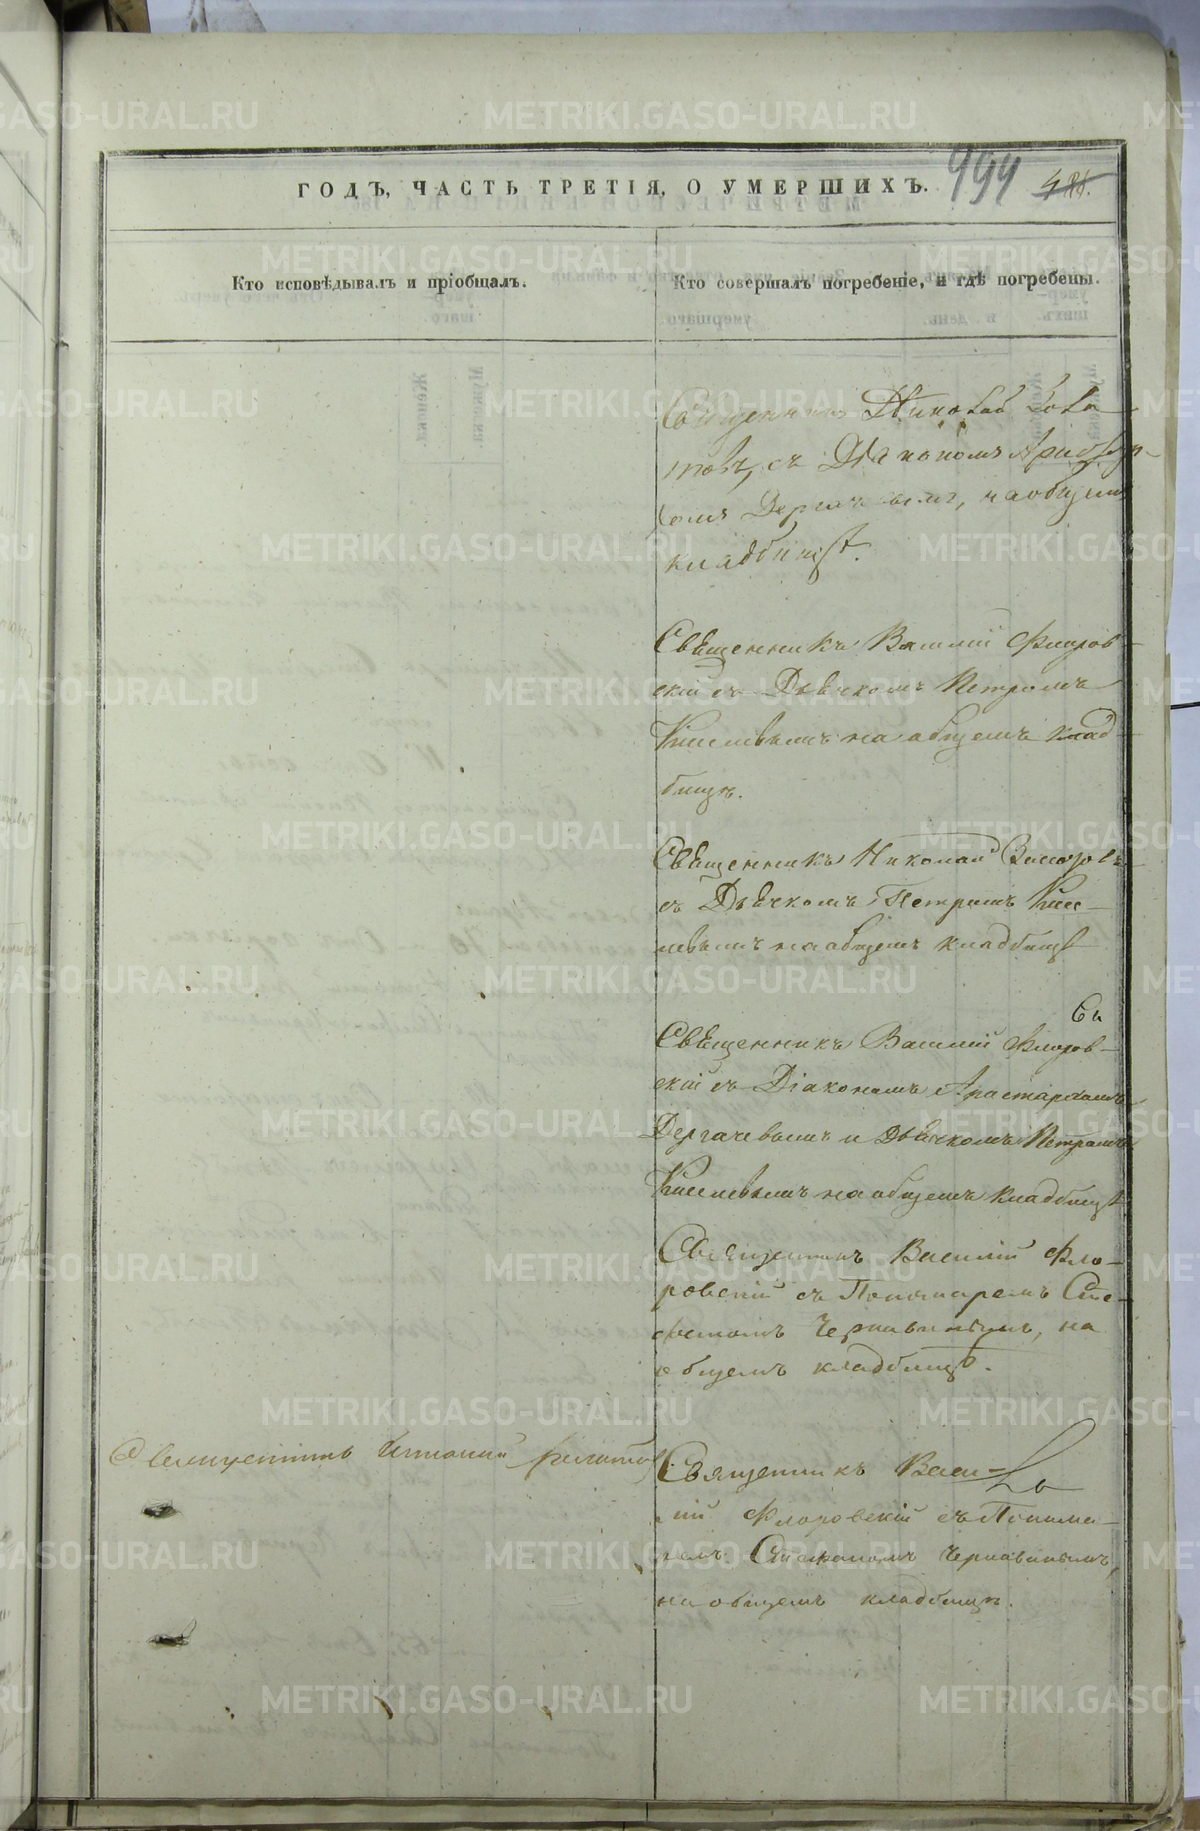 ГОДЪ, ЧАСТЬ ТРЕТІЯ, О УМЕРШИХЪ.
994
Кто исповѣдывалъ и пріобщалъ.
Кто совершалъ погребеніе, и гдѣ погребены.
Священникъ Николай
съ Діакономъ
Дергачевымъ, на общемъ
кладбищѣ.
Священникъ Василій Флоров-
скій съ Дьячкомъ Петромъ
Киселевымъ на общемъ клад
бищѣ.
Священникъ Николай
съ Дьячкомъ Петромъ Кисе-
левымъ на общемъ кладбищѣ
Священникъ Василій Флоров-
скій съ Діакономъ Аристархомъ
Дергачевымъ и Дьячкомъ Петромъ
Киселевымъ на общемъ кладбищѣ
Священникъ Василій Фло-
ровскій съ Пономаремъ Сте-
фаномъ Чернавинымъ, на
общемъ кладбищѣ.
Священникъ
Священникъ Васи-
лій Флоровскій съ Понома-
ремъ Стефаномъ Чернавинымъ,
на общемъ кладбищѣ.
METRIKI.GASO-URAL.RU